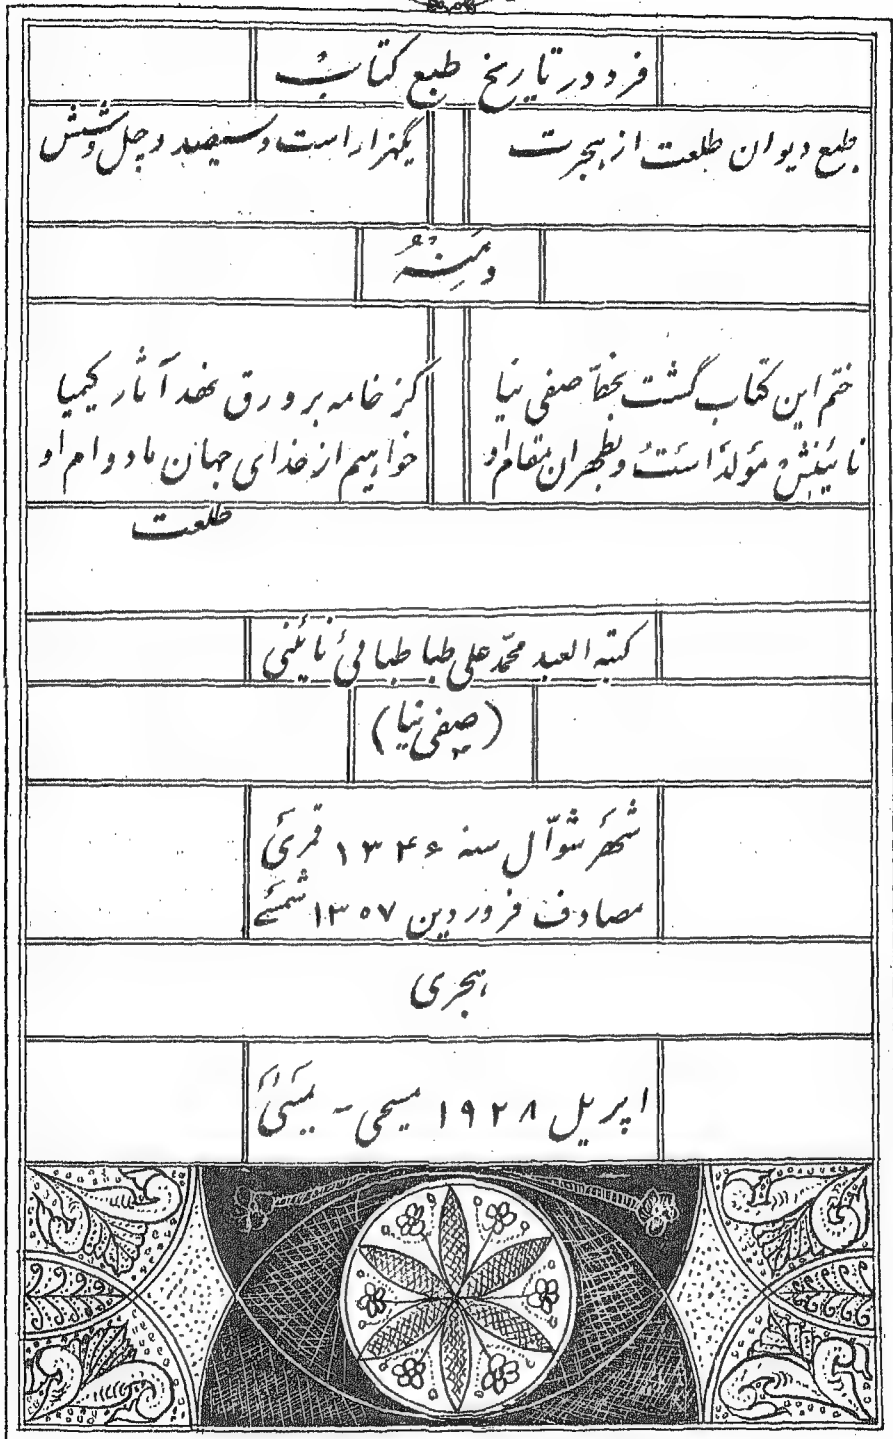 فرد در تاریخ طبع کتاب
طبع دیوان طلعت از هجرت
یکهزار است و سیصد و چل و شش
و مِنهُ
ختم این کتاب گشت بخطّ صفی نیا
کز خامه بر ورق نهد آثار کیمیا
نائینش مولد است و بطهران مقام او
خواهیم از خدای جهان ما دوام او
طلعت
کتبه العبد محمّد علی طباطبائی نائینی
(صفی نیا)
شهر شوّال سنه ۱۳۴۶ قمری
مصادف فروردین ۱۳۵۷ شمسی
هجری
اپریل ۱۹۲۸ مسیحی - بمبئی